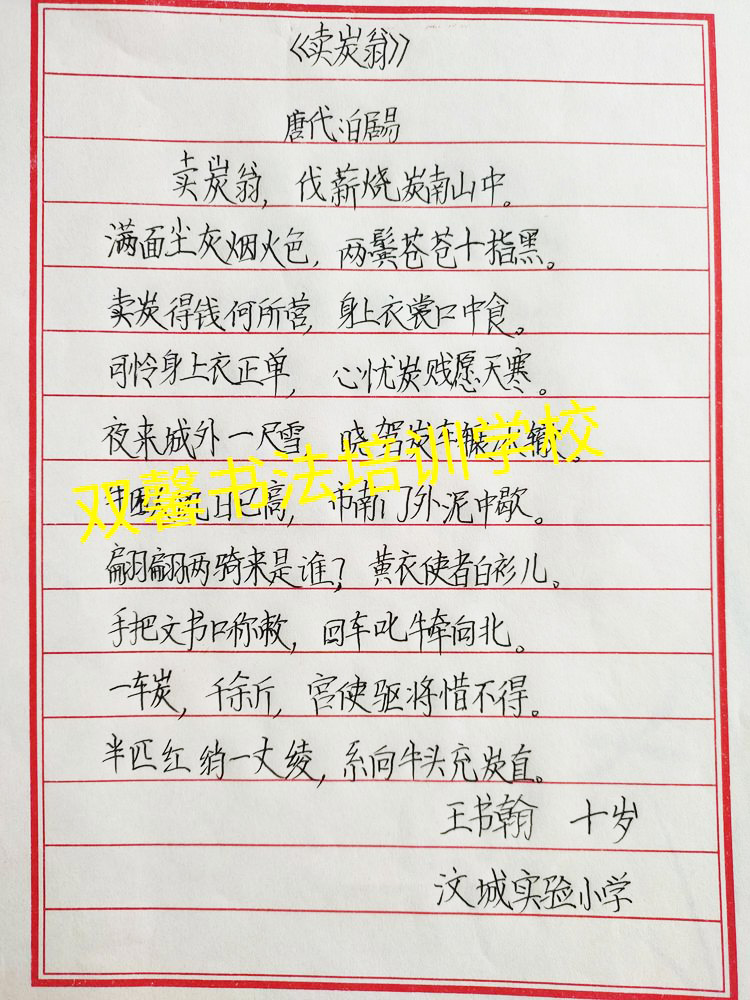 《卖炭翁》
唐代泊居易
卖炭翁，伐薪烧炭南山中。
满面尘灰烟火色，两鬓苍苍十指黑。
卖炭得钱何所营，身上衣裳口中食。
可怜身上衣正单，心忧炭贱愿天寒。
夜来城外一尺雪，晓驾炭车辗冰辙。
牛困人饥日已高，市南门外泥中歇。
双馨书法培训学校
翩翩两骑来是谁？黄衣使者白衫儿。
手把文书口称敕，回车叱牛牵向北。
一车炭，千余斤，宫使驱将惜不得。
半匹红绡一丈绫，系向牛头充炭直。
王书翰 十岁
汶城实验小学